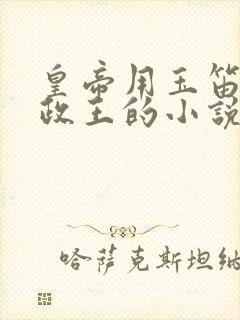 皇帝用玉笛
政王的小說
哈薩克斯坦納